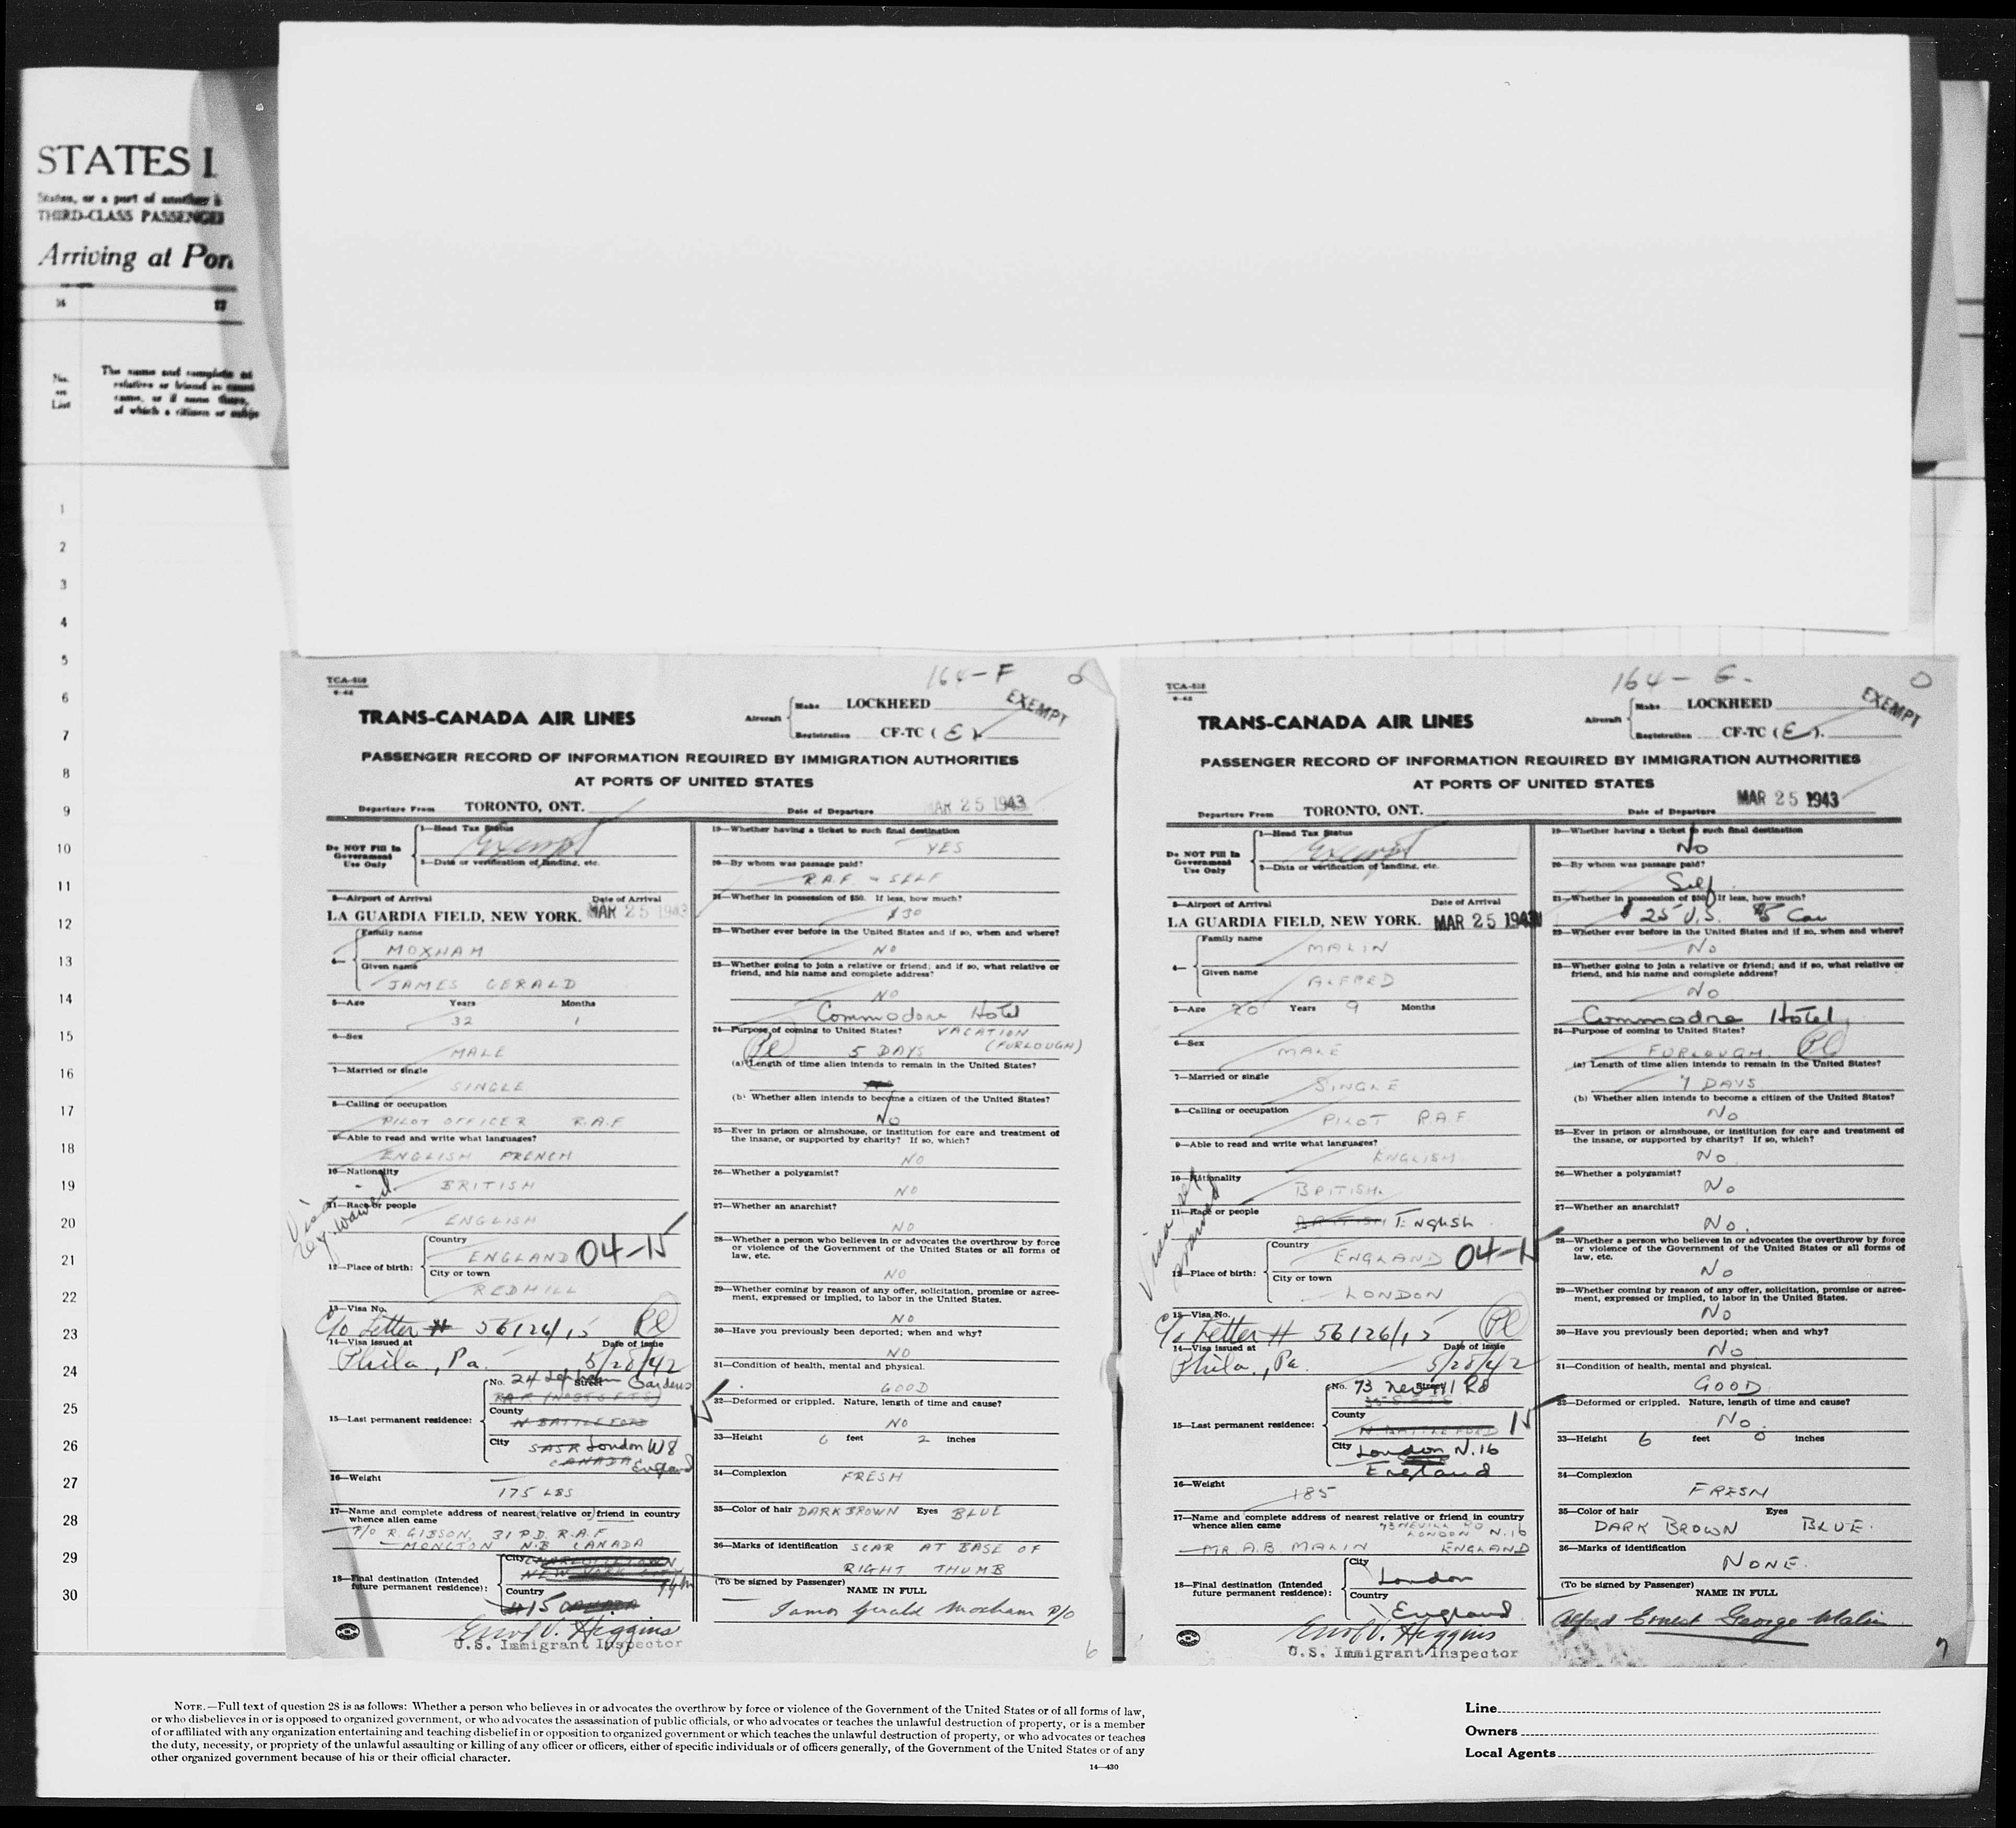 STATES I
States, or a part of another i
THIRD-CLASS PASSENGER
Arriving at Port
No. on List
The name and complete ad
relative or friend in count
came, or if none there,
of which a citizen or subje
1
2
3
4
5
6
7
8
9
10
11
12
13
14
15
16
17
18
19
20
21
22
23
24
25
26
27
28
29
30
164-F
TCA-
TRANS-CANADA AIR LINES
Aircraft Make LOCKHEED
Registration CF-TC (E)
EXEMPT
PASSENGER RECORD OF INFORMATION REQUIRED BY IMMIGRATION AUTHORITIES
AT PORTS OF UNITED STATES
Departure From TORONTO, ONT. Date of Departure MAR 25 1943
Do NOT Fill In Government Use Only
1—Head Tax Status
Exempt
2—Data or verification of landing, etc.
3—Airport of Arrival Date of Arrival
LA GUARDIA FIELD, NEW YORK. MAR 25 1943
4— Family name
MOXHAM
Given name
JAMES GERALD
5—Age Years Months
32 1
6—Sex
MALE
7—Married or single
SINGLE
8—Calling or occupation
PILOT OFFICER R.A.F
9—Able to read and write what languages?
ENGLISH FRENCH
10—Nationality
BRITISH
Visa
waived
11—Race or people
ENGLISH
12—Place of birth: Country
ENGLAND 04-15
City or town
REDHILL
13—Visa No.
C/o Letter # 56126/15
14—Visa issued at Date of issue
Phila., Pa. 5/28/42
15—Last permanent residence: No. 24 Street Gardens
County
N BATTLEFORD
City SASK London W8
CANADA England
16—Weight
175 LBS
17—Name and complete address of nearest relative or friend in country
whence alien came
P/O R. GIBSON, 31 P.D. R.A.F.
MONCTON N.B CANADA
18—Final destination (Intended
future permanent residence): City
NEW YORK CITY
Country
#15 CANADA
Errol V. Higgins
U.S. Immigrant Inspector
19—Whether having a ticket to such final destination
YES
20—By whom was passage paid?
R.A.F - SELF
21—Whether in possession of $50. If less, how much?
$30
22—Whether ever before in the United States and if so, when and where?
NO
23—Whether going to join a relative or friend; and if so, what relative or
friend, and his name and complete address?
NO
Commodore Hotel
24—Purpose of coming to United States? VACATION
(FURLOUGH)
5 DAYS
(a) Length of time alien intends to remain in the United States?
(b) Whether alien intends to become a citizen of the United States?
No
25—Ever in prison or almshouse, or institution for care and treatment of
the insane, or supported by charity? If so, which?
NO
26—Whether a polygamist?
NO
27—Whether an anarchist?
NO
28—Whether a person who believes in or advocates the overthrow by force
or violence of the Government of the United States or all forms of
law, etc.
NO
29—Whether coming by reason of any offer, solicitation, promise or agree-
ment, expressed or implied, to labor in the United States.
NO
30—Have you previously been deported; when and why?
NO
31—Condition of health, mental and physical.
GOOD
32—Deformed or crippled. Nature, length of time and cause?
NO
33—Height 6 feet 2 inches
34—Complexion FRESH
35—Color of hair DARK BROWN Eyes BLUE
36—Marks of identification SCAR AT BASE OF
RIGHT THUMB
(To be signed by Passenger)
NAME IN FULL
James Gerald Moxham P/O
6
164-G.
TCA-
TRANS-CANADA AIR LINES
Aircraft Make LOCKHEED
Registration CF-TC (E).
EXEMPT
PASSENGER RECORD OF INFORMATION REQUIRED BY IMMIGRATION AUTHORITIES
AT PORTS OF UNITED STATES
Departure From TORONTO, ONT. Date of Departure MAR 25 1943
Do NOT Fill In Government Use Only
1—Head Tax Status
Exempt
2—Data or verification of landing, etc.
3—Airport of Arrival Date of Arrival
LA GUARDIA FIELD, NEW YORK. MAR 25 1943
4— Family name
MALIN
Given name
ALFRED
5—Age 20 Years 9 Months
6—Sex
MALE
7—Married or single
SINGLE
8—Calling or occupation
PILOT R.A.F
9—Able to read and write what languages?
ENGLISH
10—Nationality
BRITISH.
Visa
waived
11—Race or people
BRITISH English
12—Place of birth: Country
ENGLAND 04-15
City or town
LONDON
13—Visa No.
C/o Letter # 56126/15
14—Visa issued at Date of issue
Phila., Pa. 5/28/42
15—Last permanent residence: No. 73 Nevill Rd Street
County
N BATTLEFORD
City London N.16
England
16—Weight
185
17—Name and complete address of nearest relative or friend in country
whence alien came 73 NEVILL RD
LONDON N.16
MR. A.B. MALIN ENGLAND
18—Final destination (Intended
future permanent residence): City
London
Country
England
Errol V. Higgins
U.S. Immigrant Inspector
19—Whether having a ticket to such final destination
No
20—By whom was passage paid?
Self
21—Whether in possession of $50. If less, how much?
$25 U.S. $5 Can
22—Whether ever before in the United States and if so, when and where?
No
23—Whether going to join a relative or friend; and if so, what relative or
friend, and his name and complete address?
No
Commodore Hotel
24—Purpose of coming to United States?
FURLOUGH.
(a) Length of time alien intends to remain in the United States?
7 DAYS
(b) Whether alien intends to become a citizen of the United States?
No
25—Ever in prison or almshouse, or institution for care and treatment of
the insane, or supported by charity? If so, which?
No
26—Whether a polygamist?
No
27—Whether an anarchist?
No.
28—Whether a person who believes in or advocates the overthrow by force
or violence of the Government of the United States or all forms of
law, etc.
No
29—Whether coming by reason of any offer, solicitation, promise or agree-
ment, expressed or implied, to labor in the United States.
No
30—Have you previously been deported; when and why?
No
31—Condition of health, mental and physical.
GOOD
32—Deformed or crippled. Nature, length of time and cause?
No.
33—Height 6 feet 0 inches
34—Complexion
FRESH
35—Color of hair Eyes
DARK BROWN BLUE.
36—Marks of identification
NONE.
(To be signed by Passenger)
NAME IN FULL
Alfred Ernest George Malin
7
NOTE.—Full text of question 28 is as follows: Whether a person who believes in or advocates the overthrow by force or violence of the Government of the United States or of all forms of law,
or who disbelieves in or is opposed to organized government, or who advocates the assassination of public officials, or who advocates or teaches the unlawful destruction of property, or is a member
of or affiliated with any organization entertaining and teaching disbelief in or opposition to organized government or which teaches the unlawful destruction of property, or who advocates or teaches
the duty, necessity, or propriety of the unlawful assaulting or killing of any officer or officers, either of specific individuals or of officers generally, of the Government of the United States or of any
other organized government because of his or their official character.
14—430
Line
Owners
Local Agents